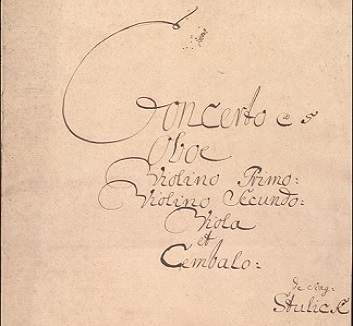 Concerto a 5
Oboe
Violino Primo:
Violino Secundo:
Viola
et
Cembalo:
de Sig:
Stulick